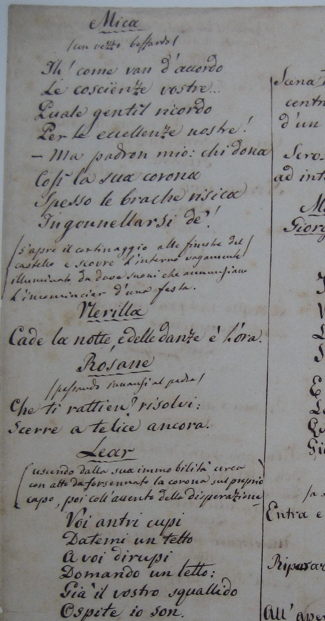 Mica
(con vezzo beffardo)
Ih! come van d'accordo
Le coscienze vostre...
Quale gentil ricordo
Per le eccellenze nostre!
– Ma padron mio: chi dona
Così la sua corona
Spesso le brache risica
Ingonnellarsi de'!
(s'apre il cortinaggio alle finestre del
castello e scovre l'interno vagamente
illuminato da dove suoni che annunziano
l'incominciar d'una festa.
Nerilla
Cade la notte, e delle danze è l'ora.
Rosane
(passando innanzi al padre)
Che ti rattien? risolvi:
Scerre a te lice ancora.
Lear
(uscendo dalla sua immobilità cerca
con atto da forsennato la corona sul proprio
capo, poi coll'accento della disperazione
Voi antri cupi
Datemi un tetto
A voi dirupi
Domando un letto:
Già il vostro squallido
Ospite io son.
Scena
centr
d'un
Sero
ad int
M
Giorg
Entra e
Riparar
All' aper